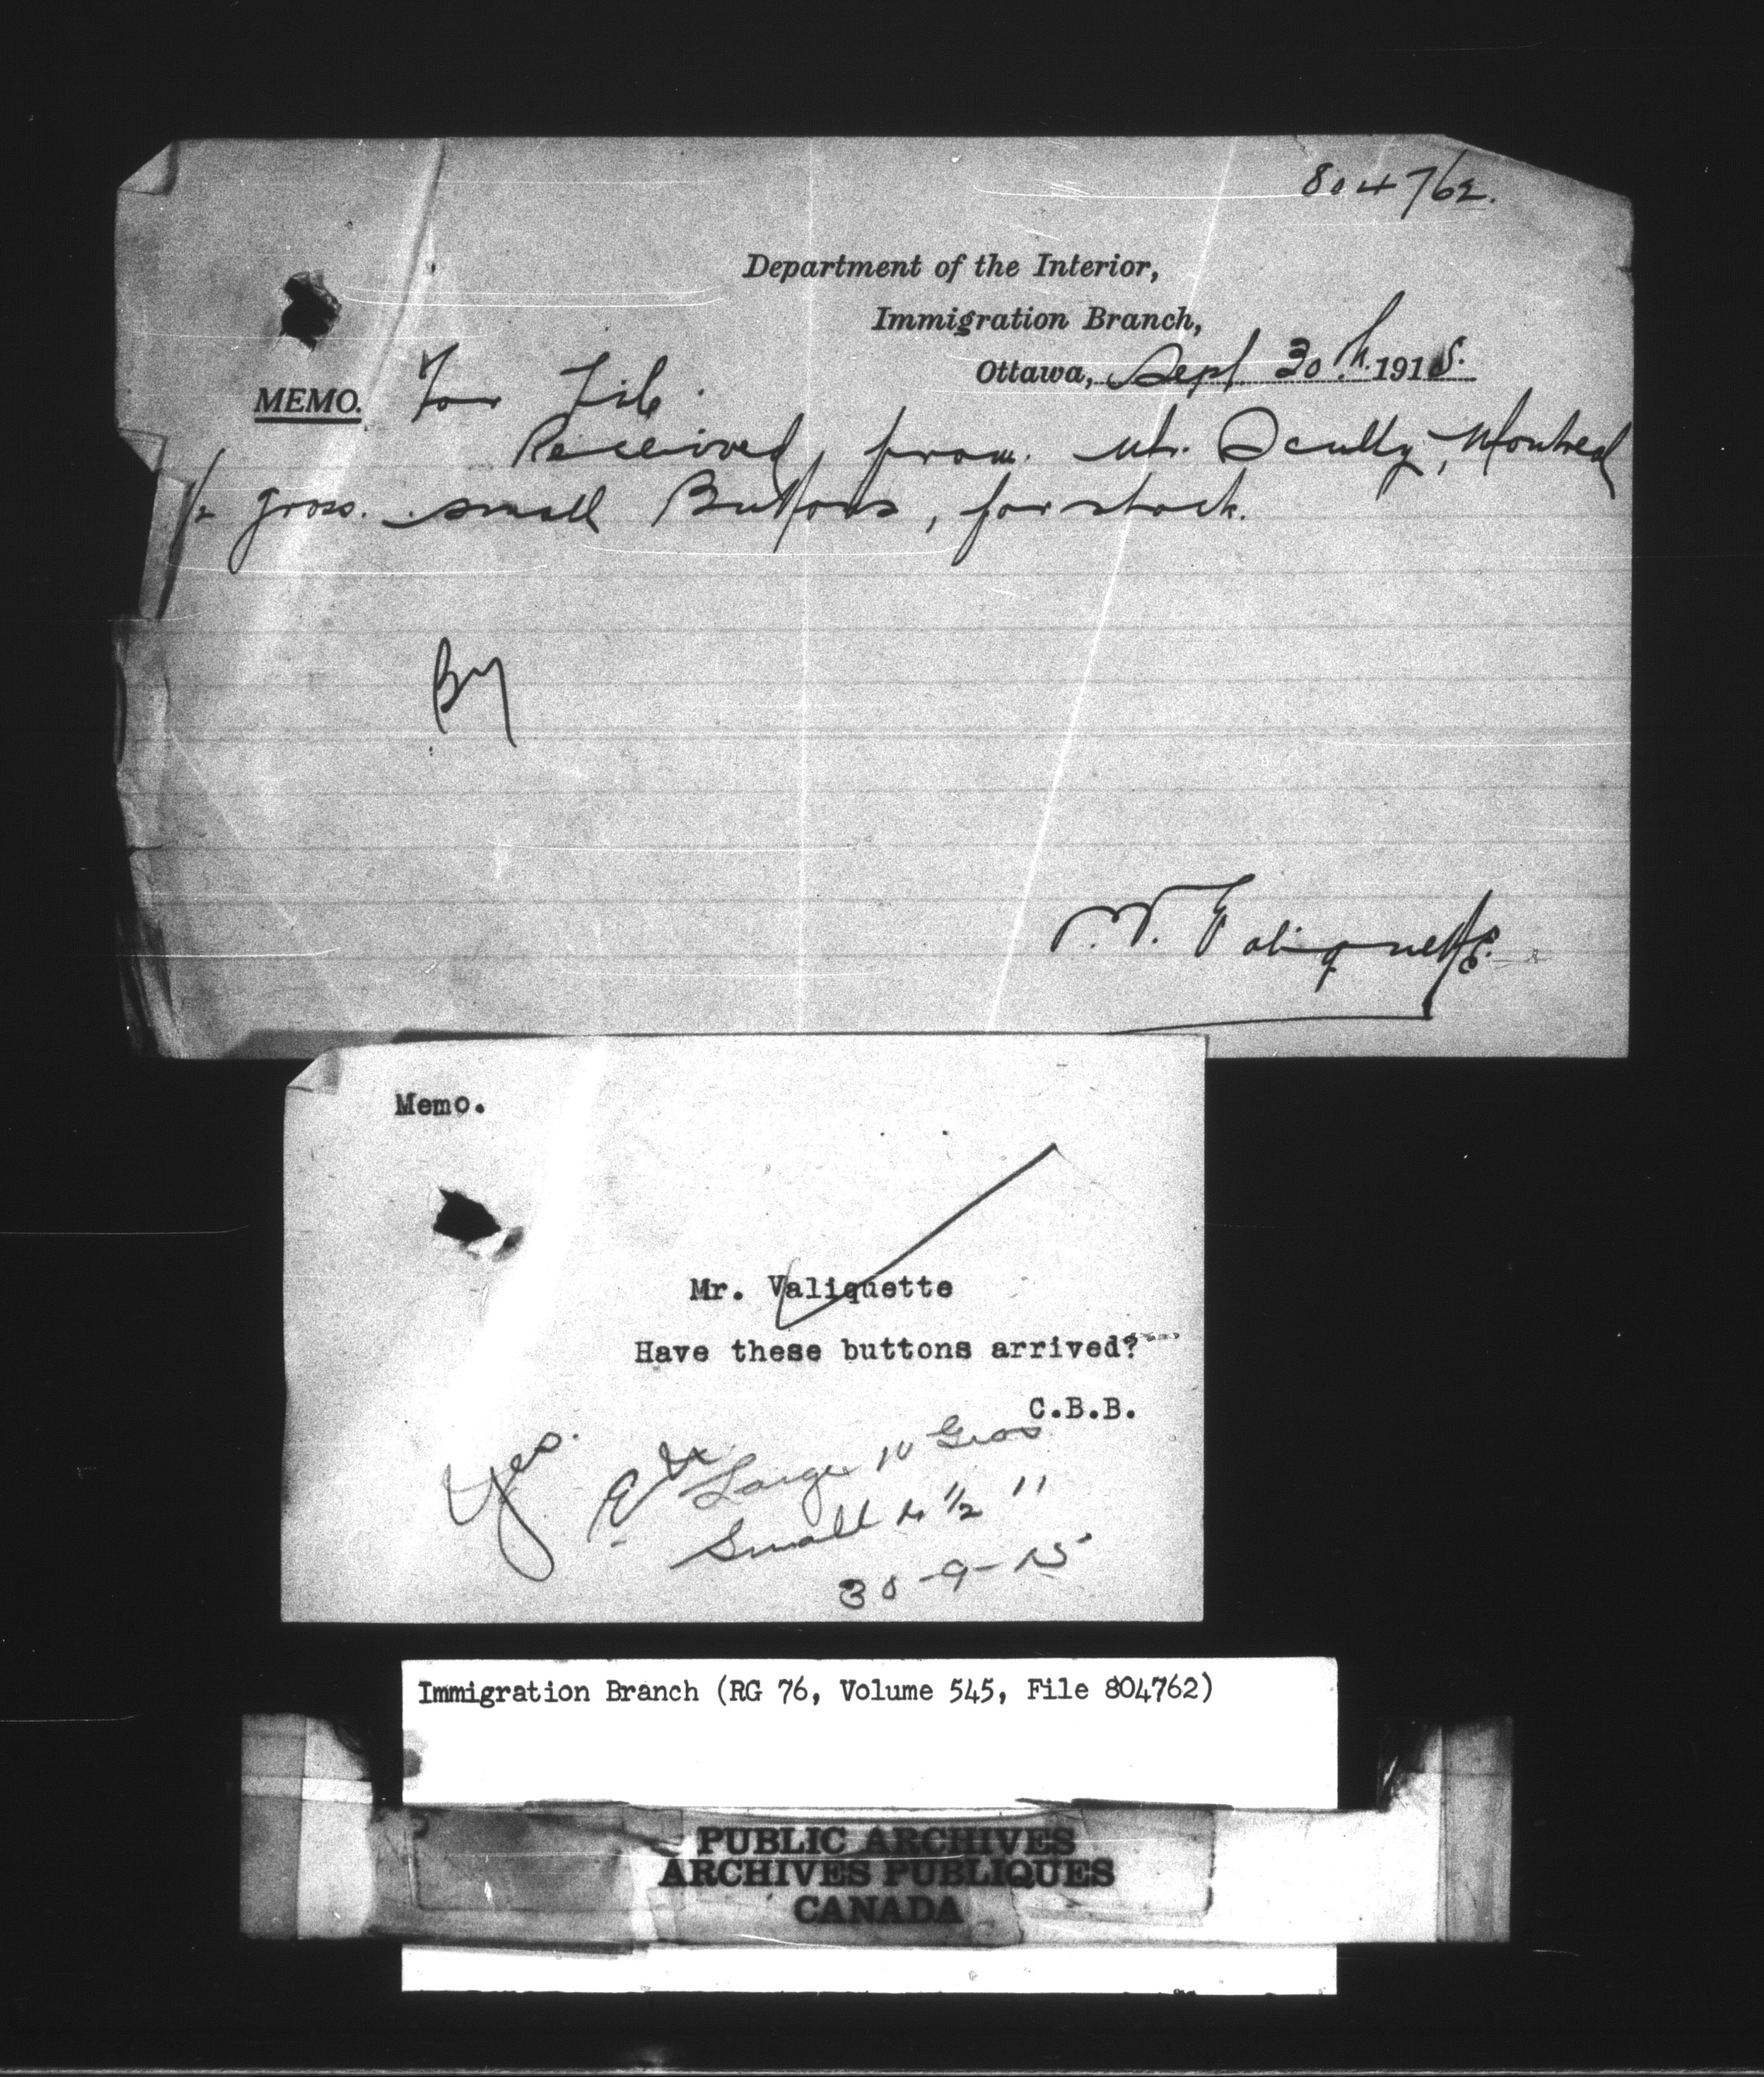 804762.
Department of the Interior,
Immigration Branch,
Ottawa, Sept. 30th. 1915.
MEMO. For File.
Received, from. Mr. Scully, Montreal
1/2 gross. small Buttons, for stock.
By
Valiquette.
Memo.
Mr. Valiquette
Have these buttons arrived?
C.B.B.
Yes.
Large Gros
Small 1/2 "
30-9-15
Immigration Branch (RG 76, Volume 545, File 804762)
PUBLIC ARCHIVES
ARCHIVES PUBLIQUES
CANADA